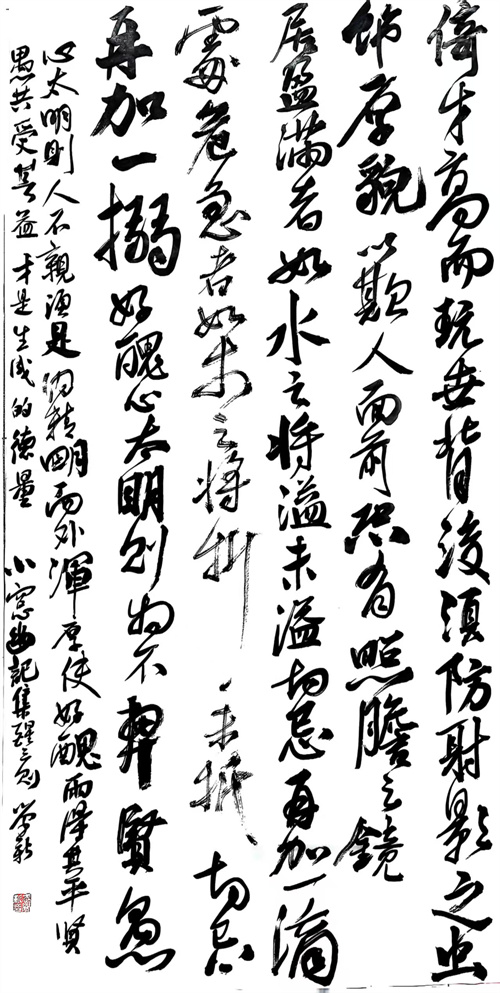 倚才高而玩世背後須防射影之虫
饰厚貌以欺人面前恐有照膽之鏡
居盈满者如水之将溢未溢切忌再加一滴
處危急者如木之将折未折切忌
再加一搦好醜心太明则物不契賢愚
心太明则人不親須是内精明而外渾厚使好醜兩得其平賢
愚共受其益才是生成的德量 小窓幽記集醒三则